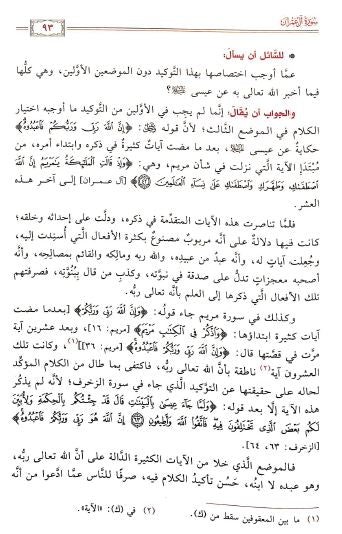 سورة آل عمران
٩٣
• للسَّائل أن يسأل:
عمَّا أوجب اختصاصها بهذا التَّوكيد دون الموضعين الأوَّلين، وهي كلُّها
فيما أخبر الله تعالى به عن عيسى ﷺ؟
والجواب أن يُقال: إنَّما لم يجب في الأوَّلين من التَّوكيد ما أوجبه اختيار
الكلام في الموضع الثَّالث؛ لأنَّ قوله ﷺ: ﴿إِنَّ ٱللَّهَ رَبِّى وَرَبُّكُمْ فَٱعْبُدُوهُ﴾
حكايةً عن عيسى ﷺ، بعد ما مضت آياتٌ كثيرةٌ في ذكره وابتداء أمره، من
مُبتَدَإِ الآية الَّتي نزلت في شأن مريم، وهي: ﴿وَإِذْ قَالَتِ ٱلْمَلَٰٓئِكَةُ يَٰمَرْيَمُ إِنَّ ٱللَّهَ
ٱصْطَفَىٰكِ وَطَهَّرَكِ وَٱصْطَفَىٰكِ عَلَىٰ نِسَآءِ ٱلْعَٰلَمِينَ ۝٤٢﴾ [آل عمران] إلى آخر هذه
العشر.
فلمَّا تناصرت هذه الآيات المتقدِّمة في ذكره، ودلَّت على إحداثه وخلقه،
كانت فيها دلالةٌ على أنَّه مربوبٌ مصنوعٌ بكثرة الأفعال الَّتي أُسندت إليه،
وجُعلت آياتٍ له، وأنَّه عبدٌ من عبيده، والله ربه ومالكه والقائم بمصالحِه، وأنَّه
أصحبه معجزاتٍ تدلُّ على صدقة في نبوَّته، وكذبِ من قال بِبُنُوَّتِه، فصرفتهم
تلك الأفعال الَّتي ذكرها إلى العلم بأنَّه تعالى ربه.
وكذلك في سورة مريم جاء قولُه: ﴿وَإِنَّ ٱللَّهَ رَبِّى وَرَبُّكُمْ﴾ [بعدما مضت
آيات كثيرة ابتداؤها: ﴿وَٱذْكُرْ فِى ٱلْكِتَٰبِ مَرْيَمَ﴾ [مريم: ١٦]، وبعد عشرين آية
مرَّت في قصَّتها قال: ﴿وَإِنَّ ٱللَّهَ رَبِّى وَرَبُّكُمْ فَٱعْبُدُوهُ﴾ [مريم: ٣٦]](١)، وكانت تلك
العشرون آية(٢) ناطقة بأنَّ الله تعالى ربُّه، فاكتفى بما طال من الكلام المؤكِّد
لحاله على حقيقتها عن التَّوكيد الَّذي جاء في سورة الزخرف؛ لأنَّه لم يذكُر
هذه الآية إلَّا بعد قوله: ﴿وَلَمَّا جَآءَ عِيسَىٰ بِٱلْبَيِّنَٰتِ قَالَ قَدْ جِئْتُكُم بِٱلْحِكْمَةِ وَلِأُبَيِّنَ
لَكُم بَعْضَ ٱلَّذِى تَخْتَلِفُونَ فِيهِ فَٱتَّقُوا۟ ٱللَّهَ وَأَطِيعُونِ ۝٦٣ إِنَّ ٱللَّهَ هُوَ رَبِّى وَرَبُّكُمْ فَٱعْبُدُوهُ﴾
[الزخرف: ٦٣، ٦٤].
فالموضع الَّذي خلا من الآيات الكثيرة الدَّالَّة على أنَّ الله تعالى ربُّه،
وهو عبده لا ابنُه، حَسُن تأكيدُ الكلام فيه، صرفًا للنَّاس عمَّا ادَّعوا من أنَّه
(١) ما بين المعقوفين سقط من (ك). (٢) في (ك): «الآية».